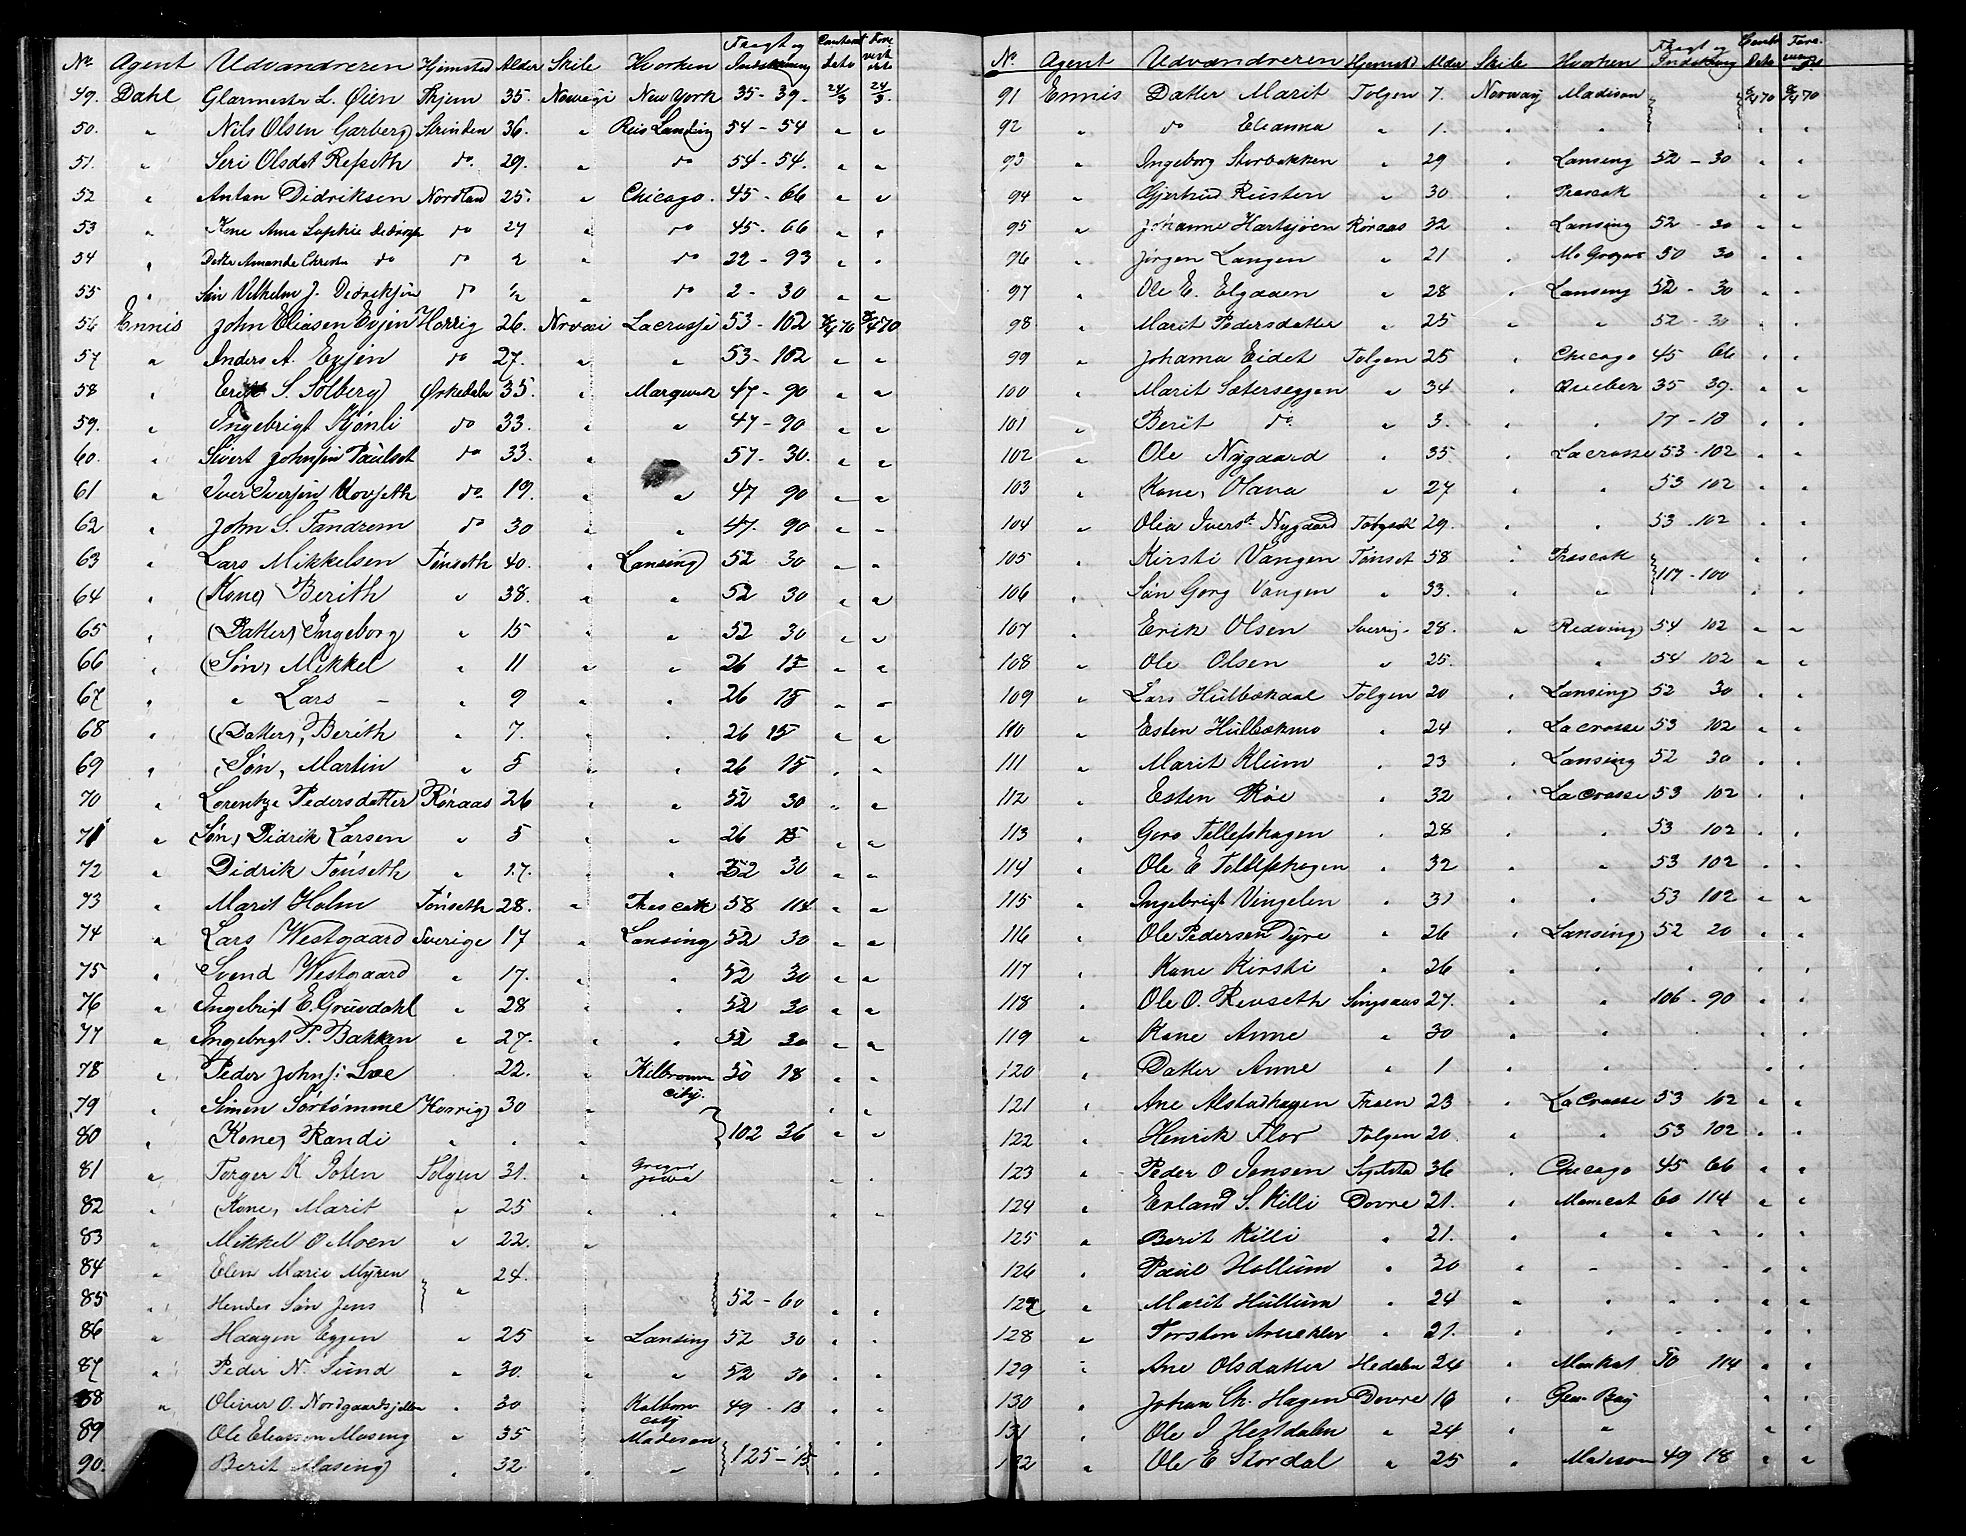 No Agent Udvandreren Hjemsted Alder Skib Hvorhen Fragt og Indskrivning Contract dato Fore
49. Dahl Glarmester L. Øien 35. Norwegi New York 35 - 39. 24/3 24/3
50. " Nils Olsen Garberg Strinden 36. " Reis Landing 54 - 54 " "
51. " Seri Olsdat Refseth do. 29. " do 54 - 54. " "
52 " Anton Didriksen Nordland 25. " Chicago. 45 - 66 " "
53 " Kone Ana Sophie do 27 " do 45 - 66 " "
54 " Datter Amanda do do 2 " do 22 - 93 " "
55 " Søn Vilhelm J. Dedreksen do ½ " do 2 - 30 " "
56 Ennis John Eliasen Evjen 26. " Lacrosse 53 - 102 8/4 70 8/4 70
57 " Anders A. Evjen do 27. " " 53 - 102 " "
58 " Erik S. Solberg Ørkedalen 35. " 47 - 90 " "
59. " Ingebrigt Kjønli do 33. " " 47 - 90 " "
60. " Sivert Johnsen do 33. " 57 - 30. " "
61 " Iver Iversen do 19. " " 47 90 " "
62 " John S. Tandrem do 30 " " 47. 90 " "
63 " Lars Mikkelsen Tønseth 40. " Lansing 52 30 " "
64 " (Kone) Berith " 38. " " 52 30 " "
65 " (Datter) Ingeborg " 15 " " 52 30 " "
66 " (Søn) Mikkel " 11 " " 26 15 " "
67 " " Lars - " 9 " " 26 15 " "
68 " (Datter), Berith " 7. " 26 15 " "
69 " (Søn, Martin " 5 " " 26 15 " "
70 " Lorentze Pedersdatter Røraas 26 " " 52 30 " "
71 " (Søn) Didrik Larsen " 5 " " 26 15 " "
72 " Didrik Tønseth " 17. " " 52 30 " "
73 " Marit Holm Tønseth 28. " 58 114 " "
74 " Lars Westgaard Sverige 17 " Lansing 52 30 " "
75 " Svend Westgaard " 17. " " 52 30 " "
76 " Ingebrigt E. Gruvdahl " 28 " 52 30 " "
77 " Ingebrigt P. Bakken " 27. " " 52 30 " "
78 " Peder Johns: Loe 22. " Kilbrown city. 50 18 " "
79 " Simen Sørtømme 30 " " "
80 " (Kone) Randi " " " 102 36 " "
81 " Torger K. Tolgen 31. " Gregor " "
82 " (Kone, Marit " 25 " " " "
83 " Mikkel O Moen " 22. "
84 " Elen Marie Myren 24.
85 " Hendes Søn Jens " 52 - 60 " "
86 " Haagen Eggen " 25 " Lansing 52 30 " "
87 " Peder N. Sund " 30. " " 52 30 " "
88 " Oliver O. " 30 " city 49 - 18 " "
89 " Ole Masing " 35 Madison " "
90. " Berit Masing " 32. " " 125 - 15 " "
No Agent Udvandreren Hjemsted Alder Skib Hvorhen Fragt og Indskrivning Contr Dato
91 Ennis Datter Marit Tolgen 7. Norway Madison 8/4 70 8/4 70
92 " do Eleanna " 1. " " " "
93 " Ingeborg Storbekken " 29 " Lansing 52 - 30 " "
94 " Gjertrud " 30 " " "
95 " Johanne Hartsjøen Røraas 32 " Lansing 52 - 30 " "
96 " Jørgen Langen " 21 " 50 30 " "
97 " Ole E. Elgaaen " 28 " Lansing 52 - 30 " "
98 " Marit Pedersdatter " 25 " " 52 - 30 " "
99 " Johanna Eidet Tolgen 25 " Chicago 45 66 " "
100 " Marit Sæterseggen " 34 " Quebek 35 39. " "
101 " Berit do " 3. " " 17 - 18 " "
102 " Ole Nygaard " 35. " Lacrosse 53 - 102 " "
103 " (Kone, Olava " 27 " " 53 102 " "
104 " Olia Ivers Nygaard 29. " " 53 - 102 " "
105 " Kirsti Vangen Tønset 58 " 117 - 100 " "
106 " Søn Gorg Vangen " 33. " " " "
107 " Erik Olsen Sverrig 28. " Redving 54 102 " "
108 " Ole Olsen " 25. " 54 102 " "
109 " Lars Hulbækdal Tolgen 20 " Lansing 52 30 " "
110 " Esten Hulbækmo " 24 " Lacrosse 53 102 " "
111 " Marit Kleim " 23 " Lansing 52 30 " "
112 " Esten Røe " 32 " LaCrosse 53 102 " "
113 " Goro Tellefshagen " 28 " " 53 102 " "
114 " Ole E Tellefshagen " 32 " " 53 102 " "
115 " Ingebrigt Vingelen " 31 " " 53 102 " "
116 " Ole Pedersen Dyre " 26 " Lansing 52 20 " "
117 " Kone Kirsti " 26 " " " " "
118 " Ole O. Renseth Singsaas 27. " " 106 - 90 " "
119 " Kone Anne " 30 " " " " "
120 " Datter Anne " 1 " " " " "
121 " Ane Alstadhagen 23 " LaCrosse 53 102 " "
122 " Henrik Flor Tolgen 20. " " 53 102 " "
123 " Peder O Jensen 36 " Chicago 45 66 " "
124 " Erland S. Killi Dovre 21. " 60 114 " "
125 " Berit Killi " 21. " " " " "
126 " Paul Hollum " 20 " " " " "
127 " Marit Hullum " 24 " " " " "
128 " Torsten " 21. " " " " "
129 " Ane Olsdatter Hedalen 24 " 50 114 " "
130 " Johan Ch. Hagen Dovre 16 " Bay " "
131 " Ole J Hestdalen " 24 " " " "
132 " Ole E Stordal " 25 " Madison 49 18 " "